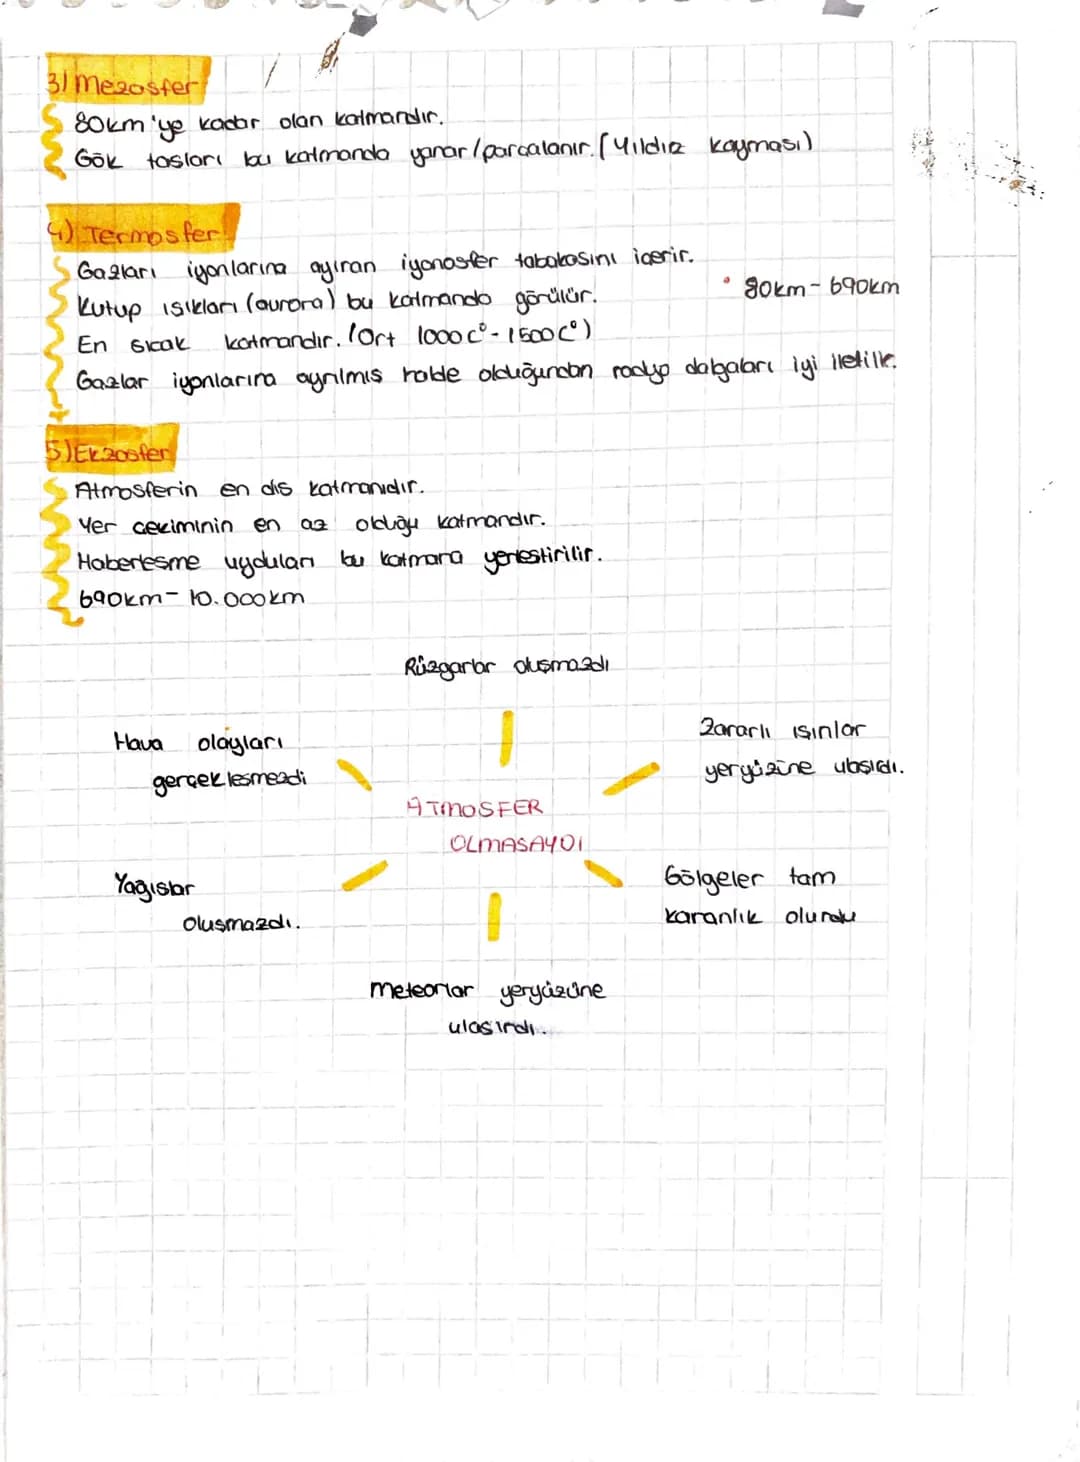 3) Mezosfer
80km'ye kadar olan katmandır.
Gök taşları bu katmanda yanar/parçalanır. (Yıldız kayması)
4) Termosfer
Gazları iyonlarına ayıran iyonosfer tabakasını içerir.
Kutup ışıkları (aurora) bu katmanda görülür.
• 80km - 690km
En sıcak katmandır. (Ort 1000 C° - 1500 C°)
Gazlar iyonlarına ayrılmış halde olduğundan radyo dalgaları iyi iletilir.
5) Ekzosfer
Atmosferin en dış katmanıdır.
Yer çekiminin en az olduğu katmandır.
Haberleşme uyduları bu katmana yerleştirilir.
690km - 10.000km
Rüzgarlar oluşmazdı
Hava olayları
gerçekleşmezdi
Zararlı ışınlar
yeryüzüne ulaşırdı.
ATMOSFER
OLMASAYDI
Yağışlar
oluşmazdı.
Gölgeler tam
karanlık olurdu
Meteorlar yeryüzüne
ulaşırdı.